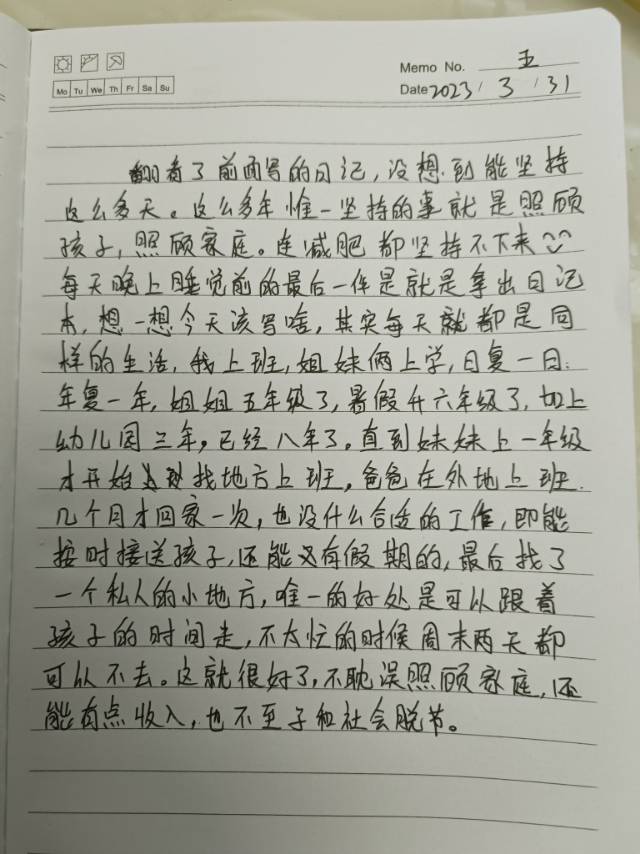 Memo No. 五
Mo Tu We Th Fr Sa Su
Date 2023 / 3 / 31
翻看了前面写的日记，没想到能坚持
这么多天。这么多年惟一坚持的事就是照顾
孩子，照顾家庭。连减肥都坚持不下来
每天晚上睡觉前的最后一件是就是拿出日记
本，想一想今天该写啥，其实每天就都是同
样的生活，我上班，姐妹俩上学，日复一日；
年复一年，姐姐五年级了，暑假升六年级了，加上
幼儿园三年，已经八年了。直到妹妹上一年级
才开始找地方上班，爸爸在外地上班
几个月才回家一次，也没什么合适的工作，即能
按时接送孩子，还能又有假期的，最后找了
一个私人的小地方，唯一的好处是可以跟着
孩子的时间走，不太忙的时候周末两天都
可以不去。这就很好了，不耽误照顾家庭，还
能有点收入，也不至于和社会脱节。